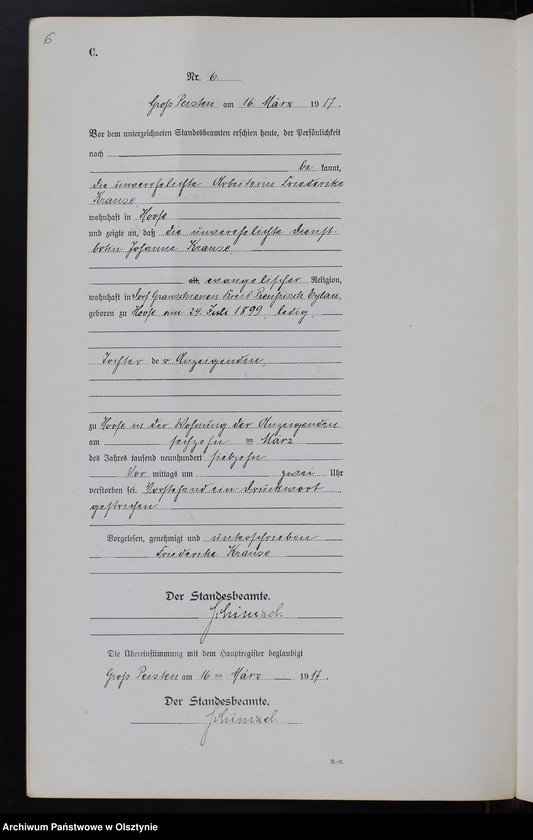 6
C.
Nr. 6.
Groß Peisten am 16. März 1917.
Vor dem unterzeichneten Standesbeamten erschien heute, der Persönlichkeit
nach
be kannt,
die unverehelichte Arbeiterin Friederike
Krause,
wohnhaft in Hoofe
und zeigte an, daß die unverehelichte Dienst-
botin Johanna Krause,
alt, evangelischer Religion,
wohnhaft in Dorf Kreis Preußisch Eylau,
geboren zu Hoofe am 24. Juli 1899, ledig,
Tochter der Anzeigenden,
zu Hoofe in der Wohnung der Anzeigenden
am sechzehn im März
des Jahres tausend neunhundert siebzehn
Vor mittags um zwei Uhr
verstorben sei. Vorstehend ein Druckwort
gestrichen.
Vorgelesen, genehmigt und unterschrieben
Friederike Krause
Der Standesbeamte.
Die Übereinstimmung mit dem Hauptregister beglaubigt
Groß Peisten am 16 ten März 1917.
Der Standesbeamte.
Archiwum Państwowe w Olsztynie